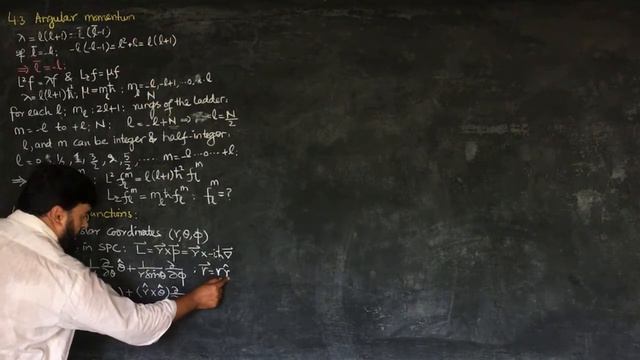 4.3 Angular momentum
λ = l(l+1) = l̄(l̄-1)
if l̄ = -l; -l(-l-1) = l²+l = l(l+1)
⇒ l̄ = -l;
L²f = λf & L_z f = μf
λ = l(l+1)ħ², μ = mħ; m = -l, -l+1, ..0,.. l
N
for each l; m_l: 2l+1: rungs of the ladder.
m = -l to +l; N: l = -l+N ⇒ l = N/2
l, and m can be integer & half-integer.
l = 0, ½, 1, 3/2, 2, 5/2, ..... m = -l ...0...+l;
⇒ L² f_l^m = l(l+1)ħ² f_l^m
L_z f_l^m = mħ f_l^m ; f_l^m = ?
functions:
coordinates (r,θ,φ)
in SPC: L⃗ = r⃗ x p⃗ = r⃗ x -iħ∇⃗
∂/∂θ θ̂ + 1/(r sinθ) ∂/∂φ ; r⃗ = r r̂
) + (r̂ x θ̂) ∂